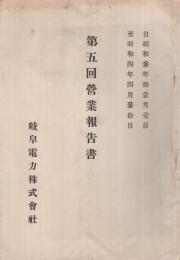 自昭和參年拾壹月壹日
至昭和四年四月參拾日
第五回營業報告書
岐阜電力株式會社